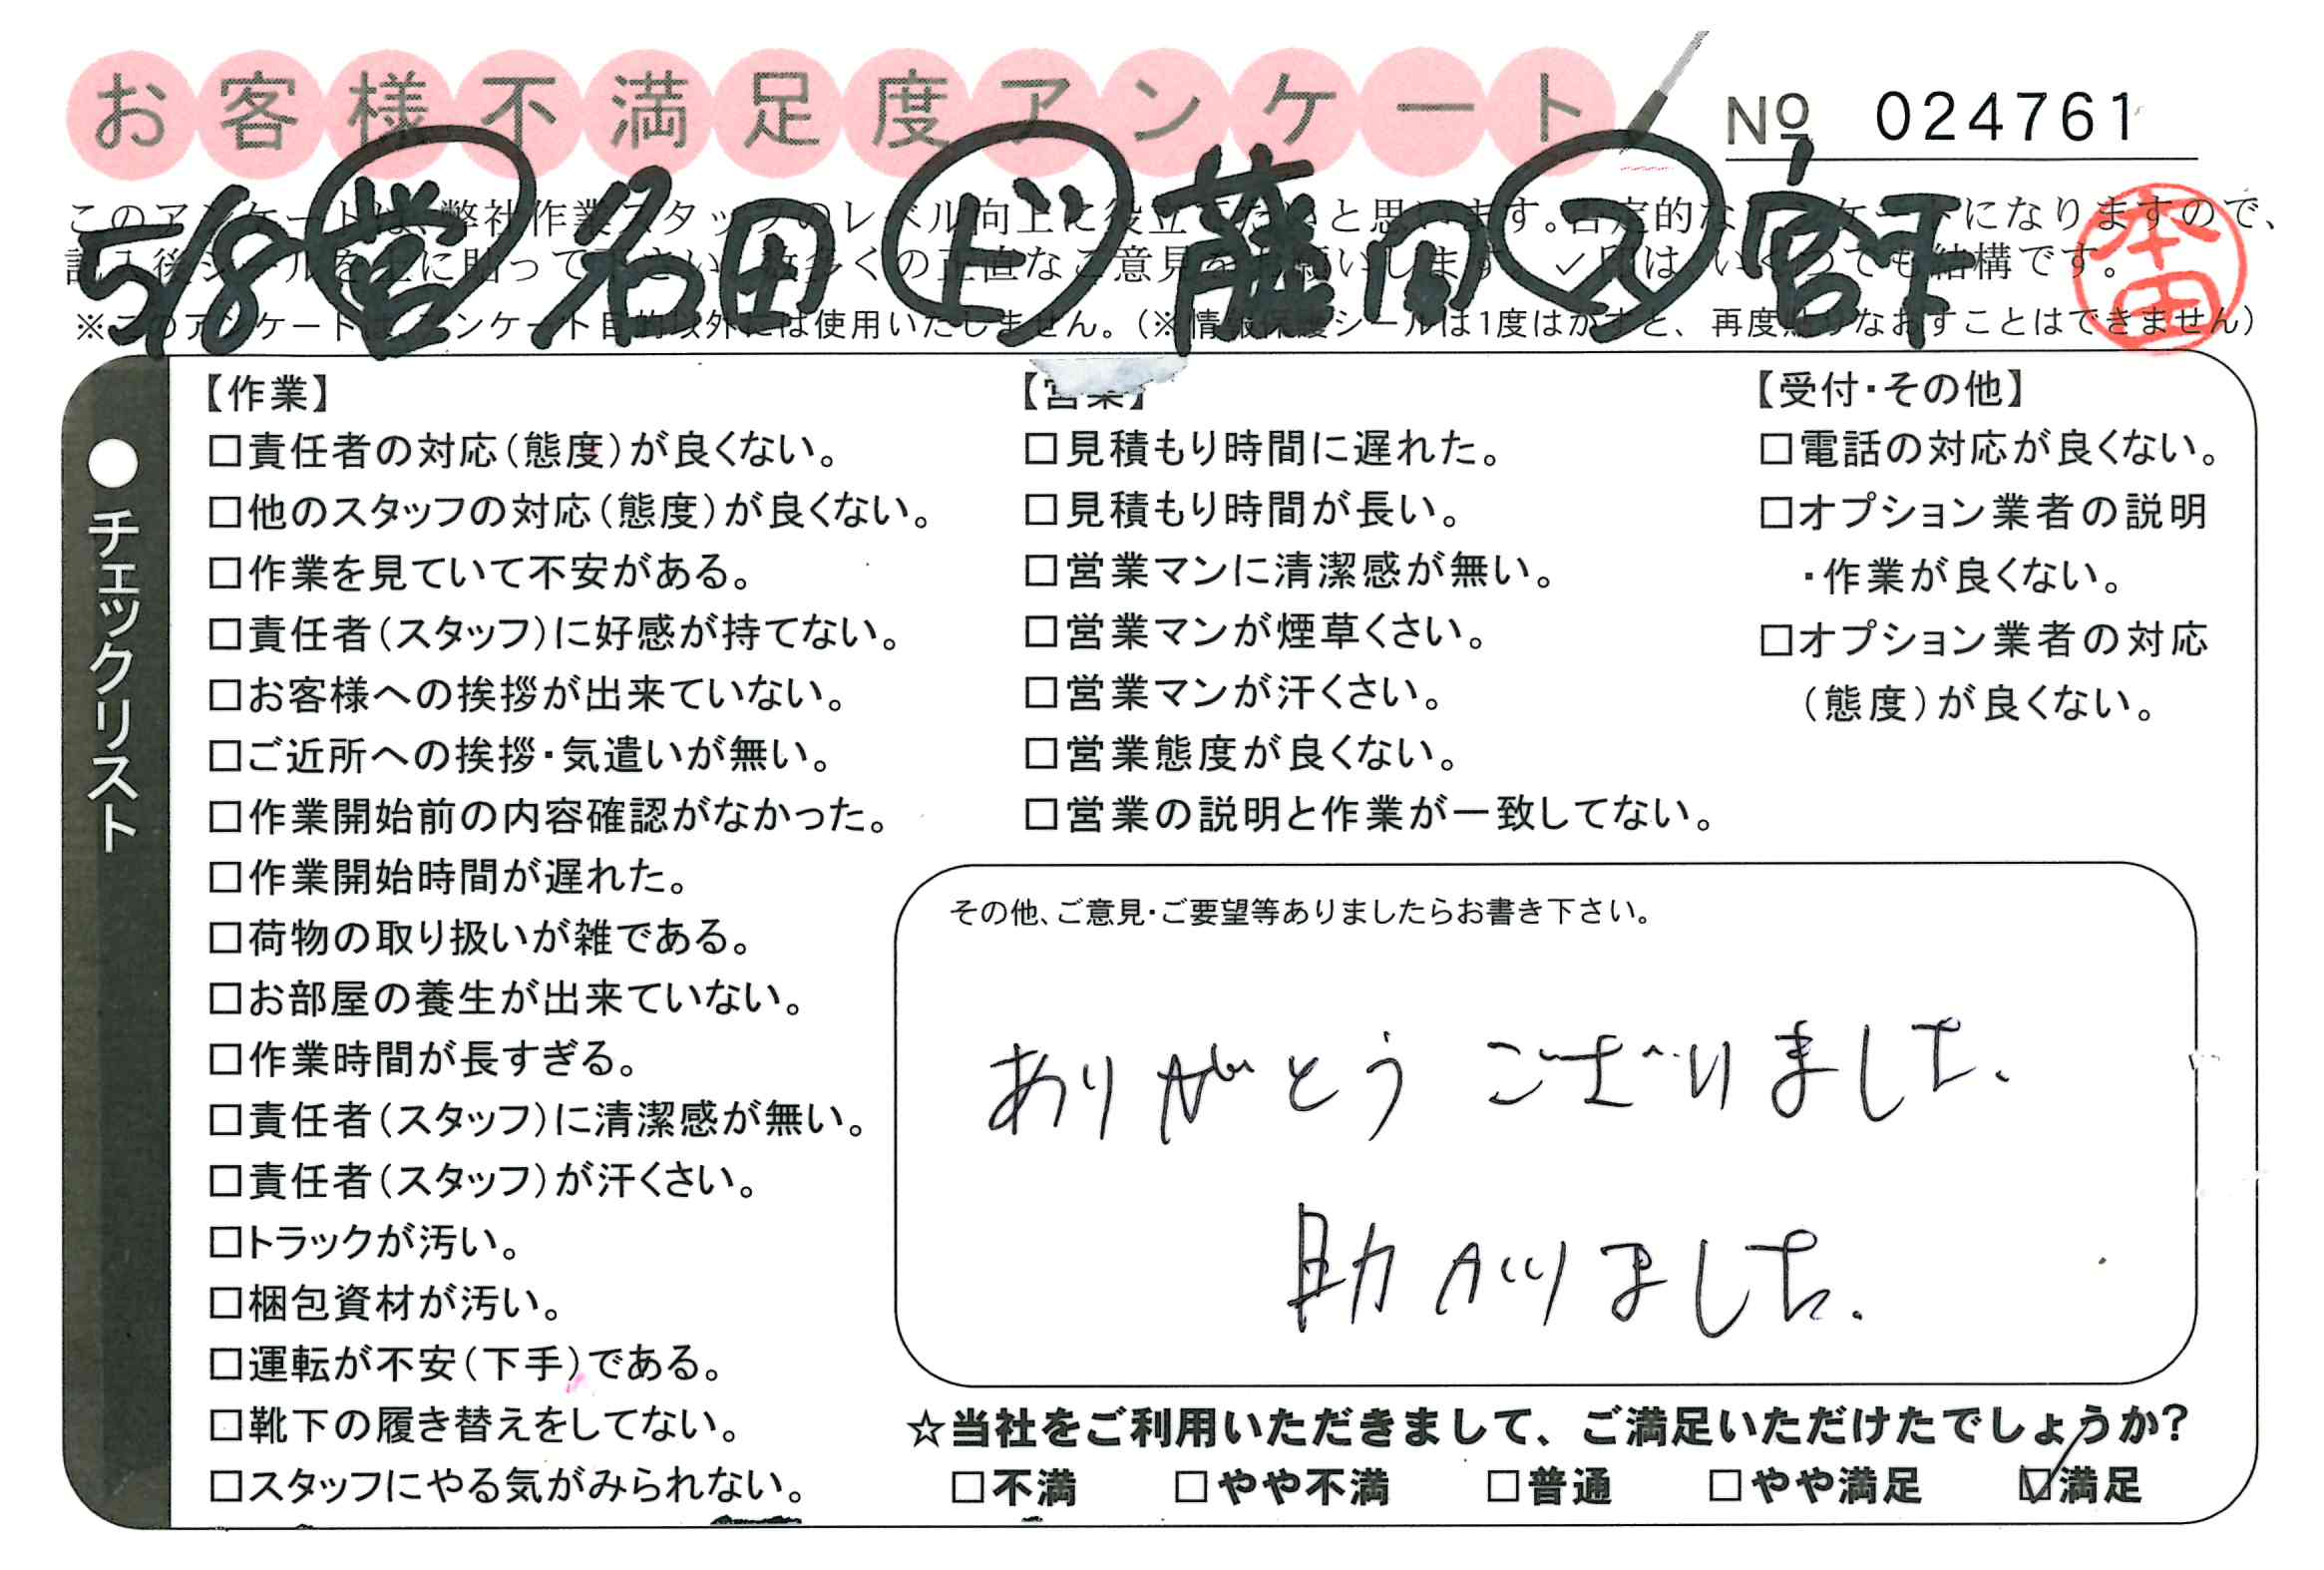 お客様不満足度アンケート
No 024761
5/8 営 名田 上 藤田 ス 宮下
本田
このアンケートは、弊社作業スタッフのレベル向上に役立てたいと思います。否定的なアンケートになりますので、
記入後シールを上に貼って下さい。数多くの正直なご意見をお願いします。✓印は、いくつでも結構です。
※このアンケートはアンケート目的以外には使用いたしません。(※情報保護シールは1度はがすと、再度貼りなおすことはできません)
●チェックリスト
【作業】
□責任者の対応(態度)が良くない。
□他のスタッフの対応(態度)が良くない。
□作業を見ていて不安がある。
□責任者(スタッフ)に好感が持てない。
□お客様への挨拶が出来ていない。
□ご近所への挨拶・気遣いが無い。
□作業開始前の内容確認がなかった。
□作業開始時間が遅れた。
□荷物の取り扱いが雑である。
□お部屋の養生が出来ていない。
□作業時間が長すぎる。
□責任者(スタッフ)に清潔感が無い。
□責任者(スタッフ)が汗くさい。
□トラックが汚い。
□梱包資材が汚い。
□運転が不安(下手)である。
□靴下の履き替えをしてない。
□スタッフにやる気がみられない。
【営業】
□見積もり時間に遅れた。
□見積もり時間が長い。
□営業マンに清潔感が無い。
□営業マンが煙草くさい。
□営業マンが汗くさい。
□営業態度が良くない。
□営業の説明と作業が一致してない。
【受付・その他】
□電話の対応が良くない。
□オプション業者の説明
・作業が良くない。
□オプション業者の対応
(態度)が良くない。
その他、ご意見・ご要望等ありましたらお書き下さい。
ありがとうございました。
助かりました。
☆当社をご利用いただきまして、ご満足いただけたでしょうか?
□不満 □やや不満 □普通 □やや満足 ☑満足